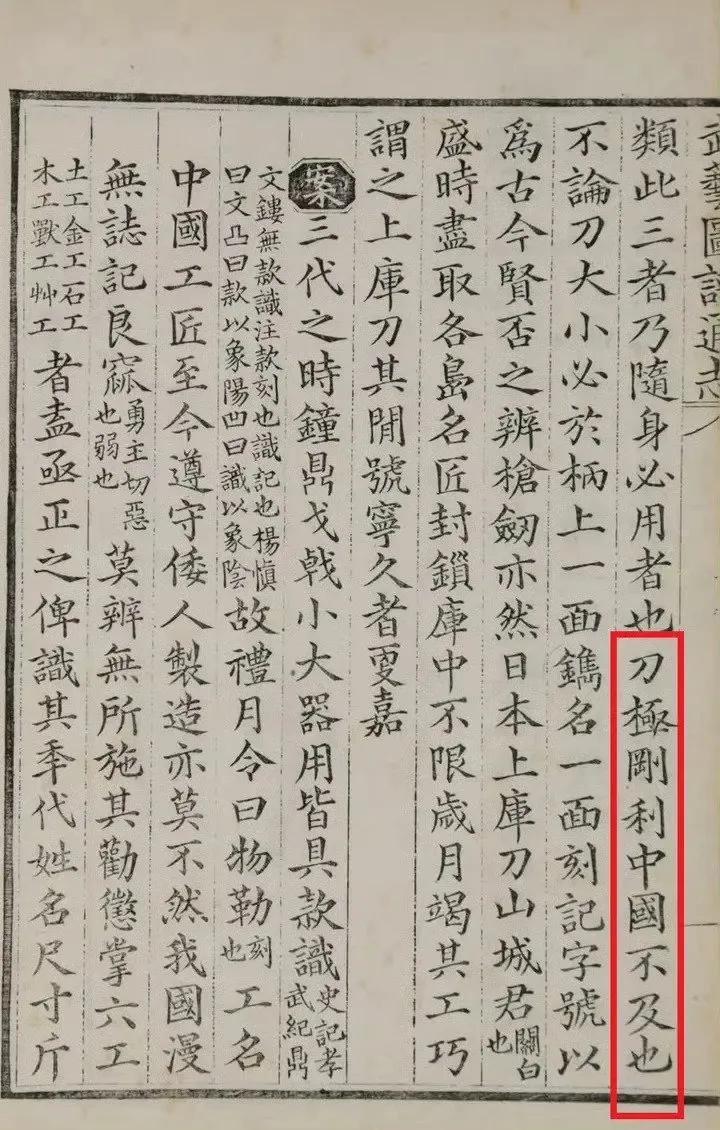 武藝圖譜通志
類此三者乃隨身必用者也刀極剛利中國不及也
不論刀大小必於柄上一面鐫名一面刻記字號以
爲古今賢否之辨槍劒亦然日本上庫刀山城君關白也
盛時盡取各島名匠封鎖庫中不限歲月竭其工巧
謂之上庫刀其閒號寧久者更嘉
案三代之時鐘鼎戈戟小大器用皆具款識史記孝武紀鼎
文鏤無款識注款刻也識記也楊愼曰文凸曰款以象陽凹曰識以象陰故禮月令曰物勒刻也工名
中國工匠至今遵守倭人製造亦莫不然我國漫
無誌記良窳勇主切惡也弱也莫辨無所施其勸懲掌六工
土工金工石工木工獸工艸工者盍亟正之俾識其秊代姓名尺寸斤